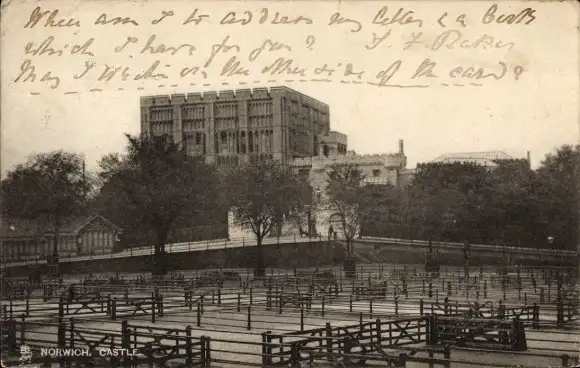 When am I to address my letter & a book
which I have for you? T. F. Baker
May I write on the other side of the card?
NORWICH, CASTLE.